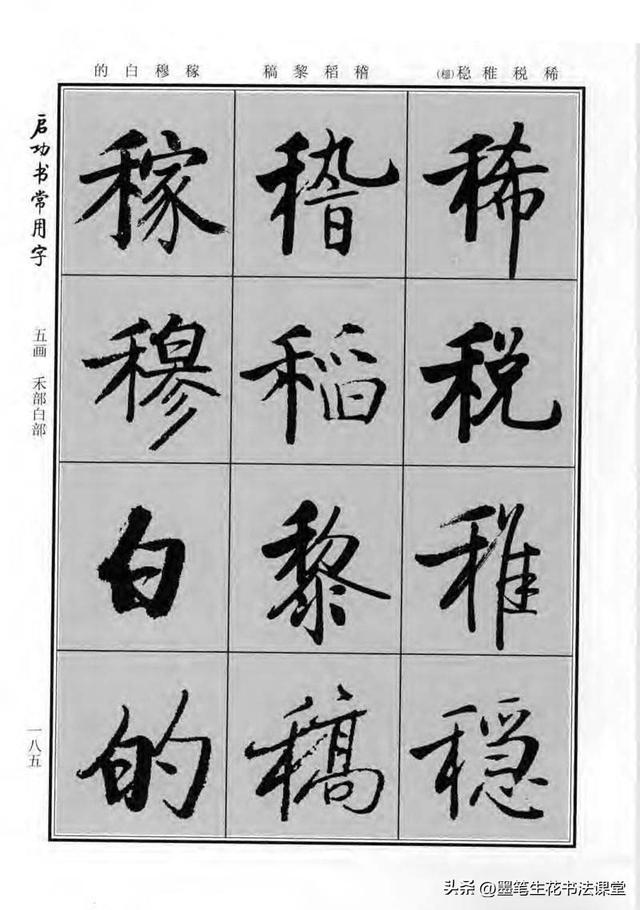 稀税稚稳(穩)
稽稻黎稿
稼穆白的
稀税稚稳
稽稻黎稿
稼穆白的
启功书常用字
五画 禾部白部
一八五
头条 @墨笔生花书法课堂